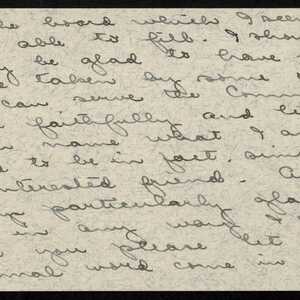 board which I seem
able to fill. I should
be glad to have
taken by some
can serve the Comm
faithfully and
name what I a
to be in fact, sim
interested friend. A
particularly gla
in any way I
you please let
word come in